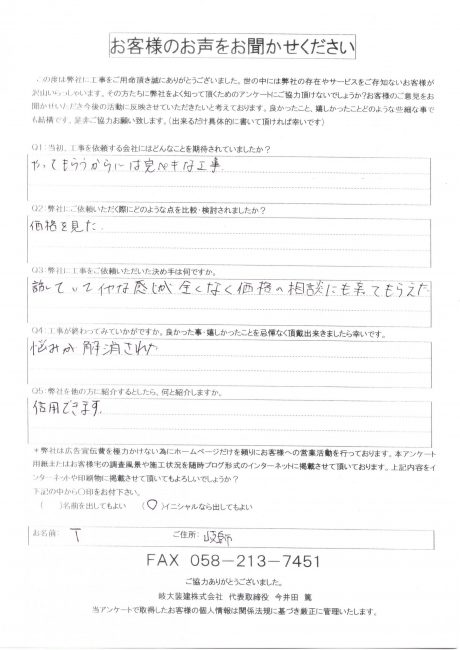 お客様のお声をお聞かせください
この度は弊社に工事をご用命頂き誠にありがとうございました。世の中には弊社の存在やサービスをご存知ないお客様が
沢山いらっしゃいます。その方たちに弊社をよく知って頂くためのアンケートにご協力頂けないでしょうか?お客様のご意見をお
聞かせいただき今後の活動に反映させていただきたいと考えております。良かったこと、嬉しかったことどのような些細な事で
も結構です。是非ご協力お願い致します。(出来るだけ具体的に書いて頂ければ幸いです)
Q1:当初、工事を依頼する会社にはどんなことを期待されていましたか?
やってもらうからには完ペキな工事
Q2:弊社にご依頼いただく際にどのような点を比較・検討されましたか?
価格を見た
Q3:弊社に工事をご依頼いただいた決め手は何ですか。
話していってイヤな感じが全くなく価格の相談にも来てもらえた
Q4:工事が終わってみていかがですか。良かった事・嬉しかったことを忌憚なく頂戴出来きましたら幸いです。
悩みが解消された
Q5:弊社を他の方に紹介するとしたら、何と紹介しますか。
信用できます。
*弊社は広告宣伝費を極力かけない為にホームページだけを頼りにお客様への営業活動を行っております。本アンケート
用紙またはお客様宅の調査風景や施工状況を随時ブログ形式のインターネットに掲載させて頂いております。上記内容をイ
ンターネットや印刷物に掲載させて頂いてもよろしいでしょうか?
下記の中から○印をお付下さい。
( )名前を出してもよい (○)イニシャルなら出してもよい
お名前: T ご住所: 岐阜市
FAX 058-213-7451
ご協力ありがとうございました。
岐大装建株式会社 代表取締役 今井田 篤
当アンケートで取得したお客様の個人情報は関係法規に基づき厳正に管理いたします。